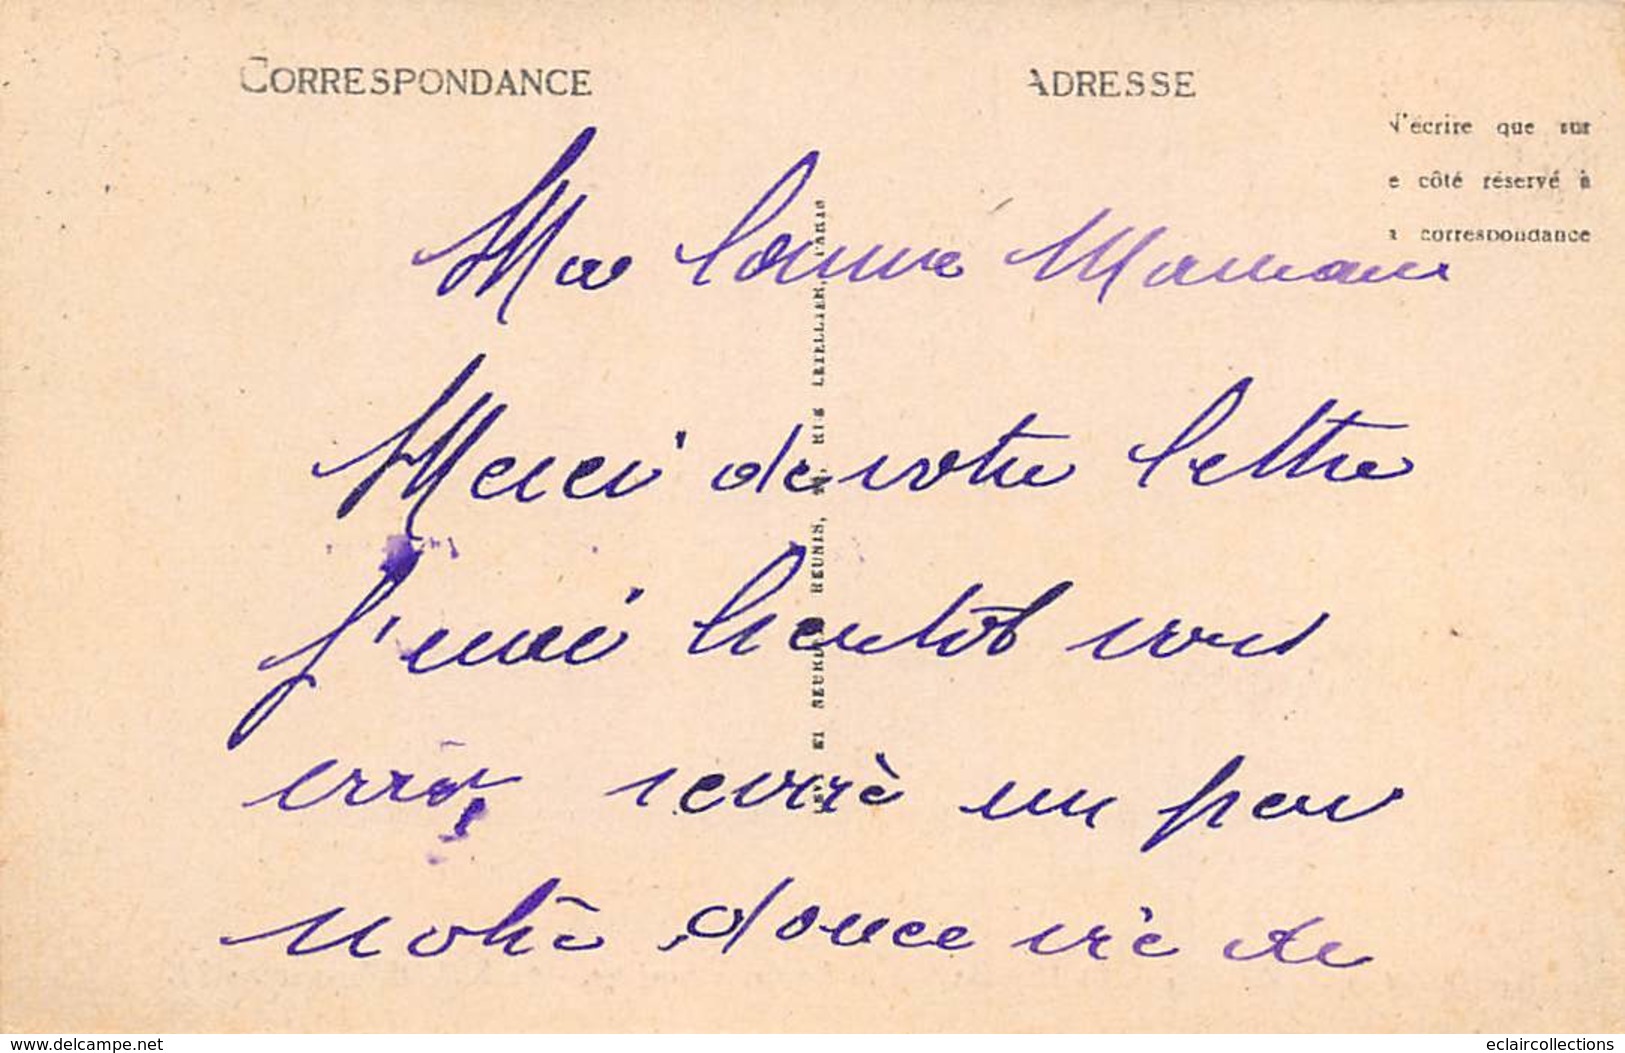 CORRESPONDANCE
ADRESSE
N'écrire que sur
e côté réservé à
a correspondance
Ma bonne Maman
Merci de votre lettre
J'irai bientôt vous
voir revivre un peu
notre douce vie de
LEVY ET NEURDEIN REUNIS, RUE LETELLIER, PARIS
www.delcampe.net
eclaircollections